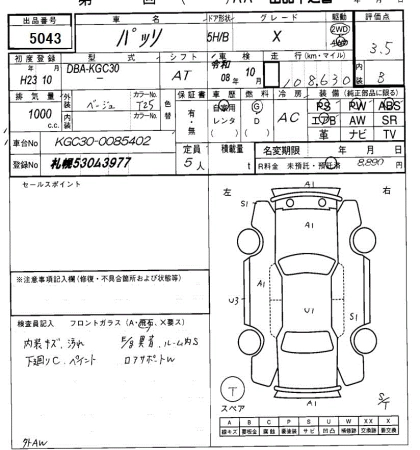 出品番号 車名 ドア形状 グレード 駆動 評価点
5043 パッソ 5H/B X 2WD 4WD 3.5
初度登録 型式 シフト 車検 走行(km・マイル) 内装
H23年10月 DBA-KGC30 AT 令和08年10月 108,630 B
排気量 外装 カラーNo. 色替 保証書 車歴 燃料 冷房 装備(純正部品に限る)
1000c.c. ベージュ T25 有・無 自家用 レンタ G D AC PS PW ABS
エアB AW SR
革 ナビ TV
車台No KGC30-0085402 定員 積載量 名変期限 年 月 日
登録No 札幌530ぬ3977 5人 t R料金 未預託・預託済 8,890円
セールスポイント
左 右
※注意事項記入欄(修復・不具合箇所および状態等)
検査員記入 フロントガラス(A・飛石、X要ス)
内装キズ、汚れ
下廻りC、ペイント ロアサポートW
外AW
A1
S1 S1
A1 A1
U3 U1
A1
S/T
T
スペア
A B C P S U W X XX X
線キズ 要板金 腐食 要塗装 サビ 凹凸 補修跡 交換跡 要交換